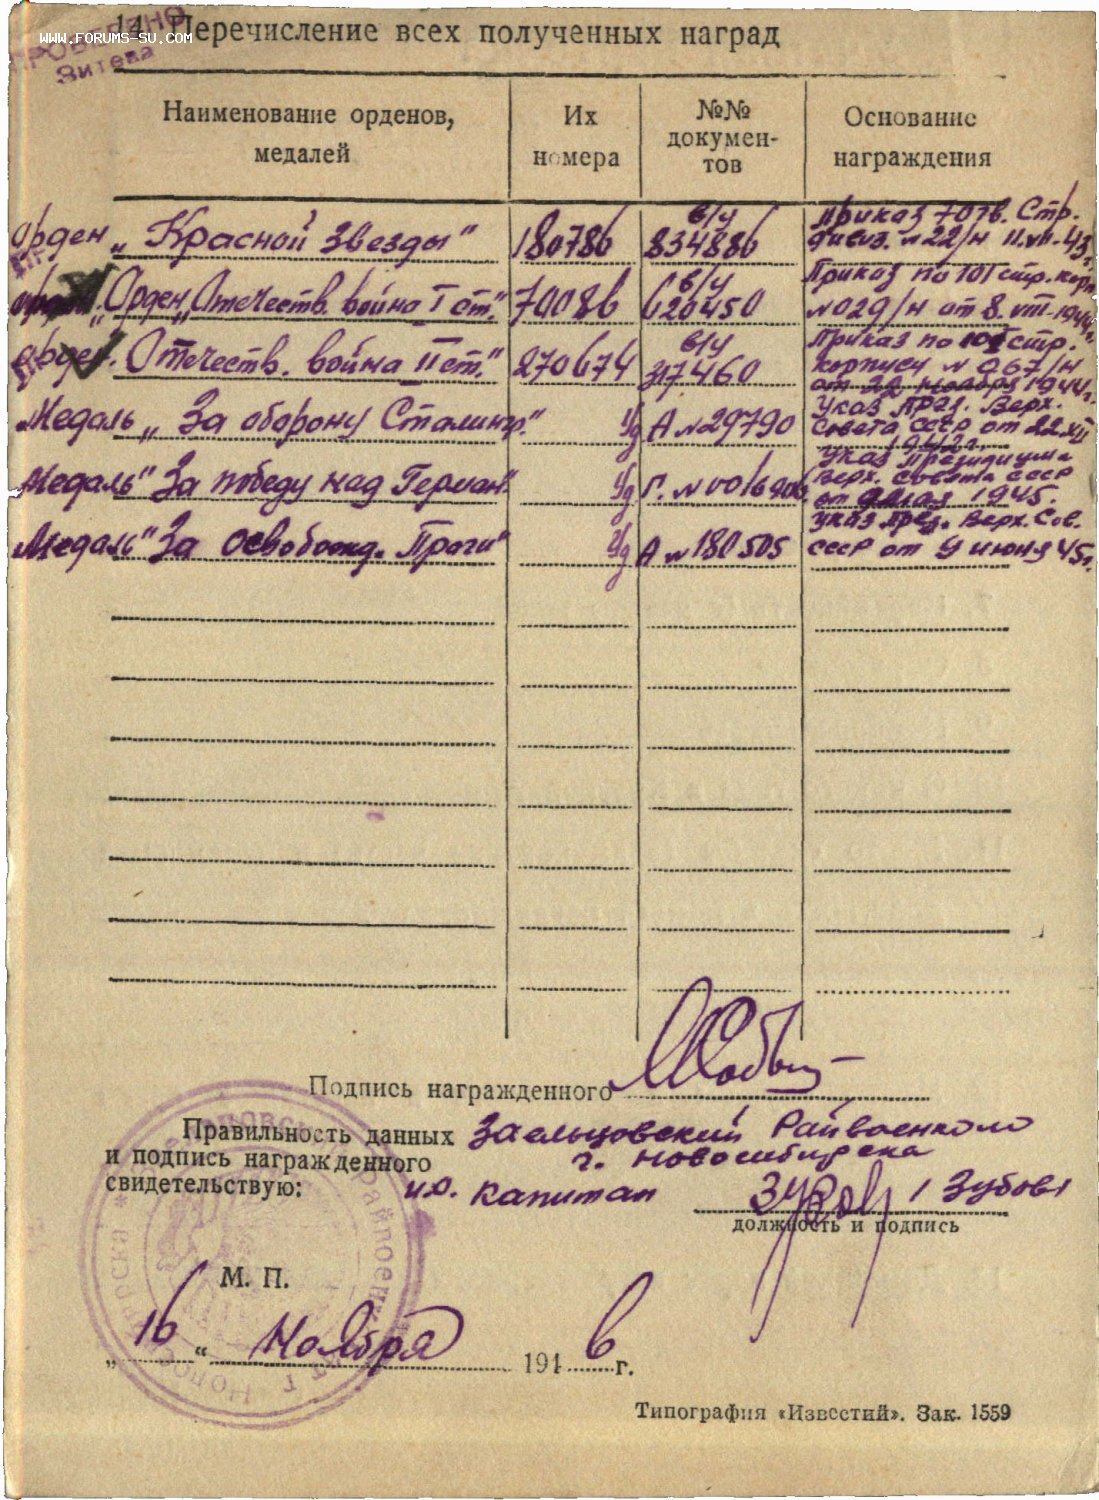 ПРОВЕРЕНО
WWW.FORUMS-SU.COM
14. Перечисление всех полученных наград
Наименование орденов, медалей
Их номера
№№ докумен-тов
Основание награждения
Орден „Красной Звезды" 180786 в/ч 834886 Приказ 70 гв. Стр. дивиз. №22/н 11.VII-43г.
„Орден „Отечеств. война I ст." 70086 в/ч 620450 Приказ по 101 стр. корп №029/н от 8.VIII-1944г.
орден. Отечеств. война II ст." 270674 в/ч 317460 Приказ по 101 стр. корпусу №067/н от 22 ноября 1944г.
Медаль „За оборону Сталингр." Уд А №29790 Указ През. Верх. Совета СССР от 22 XII 1942г.
Медаль "За победу над Герман." Уд Г. № Указ Президиума Верх. Совета СССР от 9 мая 1945.
Медаль "За Освобожд. Праги" Уд А №180505 Указ През. Верх. Сов. СССР от 9 июня 45г.
Подпись награжденного
Правильность данных Заельцовский Райвоенком
и подпись награжденного г. Новосибирска
свидетельствую: и.о. капитан / Зубов /
должность и подпись
М. П.
„16" Ноября 1946 г.
Типография «Известий». Зак. 1559